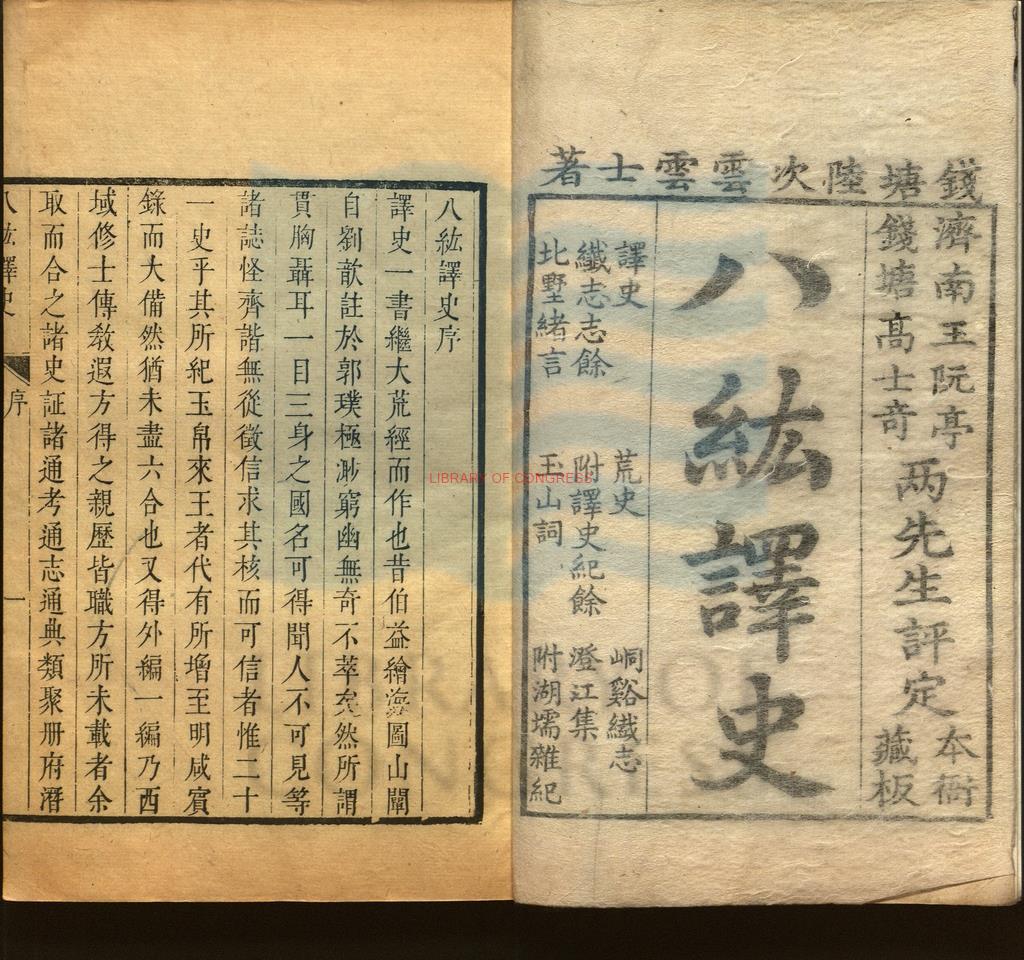 錢塘陸次雲雲士著
濟南王阮亭
錢塘高士奇
两先生評定
本衙
藏板
八紘譯史
譯史 荒史 峒谿纖志
纖志志餘 附譯史紀餘 澄江集
北墅緒言 玉山詞 附湖壖雜紀
八紘譯史序
譯史一書繼大荒經而作也昔伯益繪海圖山闡
自劉歆註於郭璞極渺窮幽無奇不萃矣然所謂
貫胸聶耳一目三身之國名可得聞人不可見等
諸誌怪齊諧無從徵信求其核而可信者惟二十
一史乎其所紀玉帛來王者代有所增至明咸賓
錄而大備然猶未盡六合也又得外編一編乃西
域修士傳敎遐方得之親歷皆職方所未載者余
取而合之諸史証諸通考通志通典類聚册府潛
八紘譯史 序 一
LIBRARY OF CONGRESS